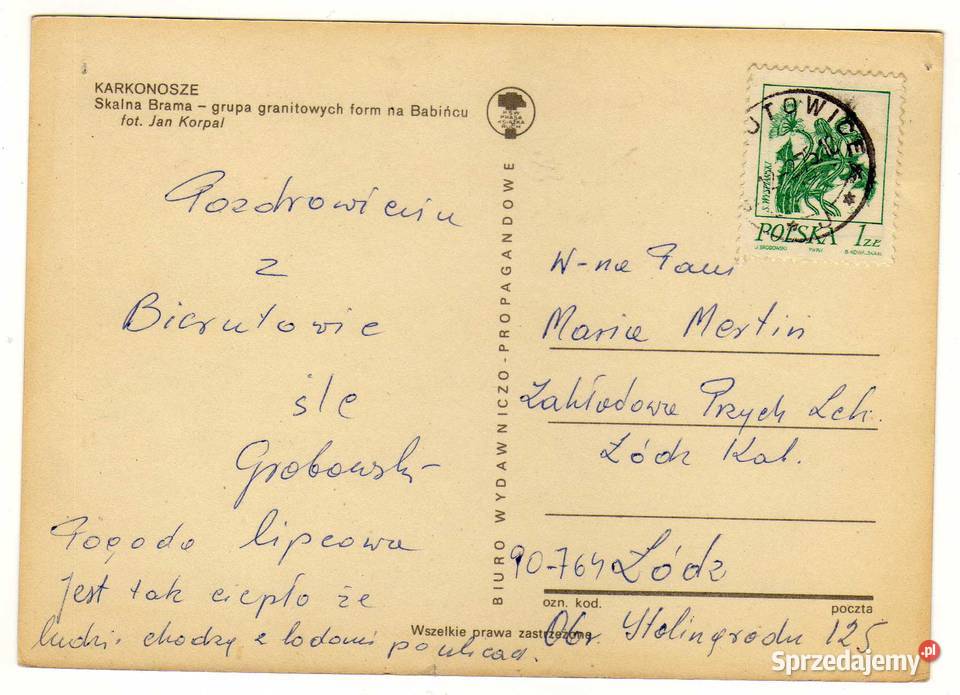 KARKONOSZE
Skalna Brama – grupa granitowych form na Babińcu
fot. Jan Korpal
Pozdrowienia
z
Bierutowic
śle
Grabowski
Pogoda lipcowa
Jest tak ciepło że
ludzie chodzą z lodami po ulicach.
BIURO WYDAWNICZO-PROPAGANDOWE
RSW
PRASA
KSIĄŻKA
RUCH
UTOWICE
S. WYSPIAŃSKI
POLSKA 1 ZŁ
W-na Pani
Maria Mertin
Zakładowa Przych Lek.
Łódź Kal.
90-764 Łódź
ozn. kod. poczta
Obr. Stalingradu 125
Wszelkie prawa zastrzeżone
Sprzedajemy.pl